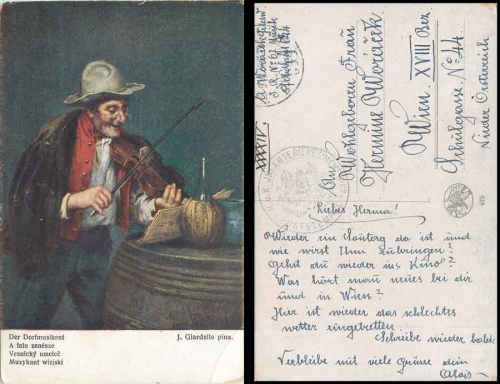 Der Dorfmusikant
A falu zenésze
Vesnický umelec
Muzykant wiejski
J. Giardello pinx.
XXXIV.
An
Wohlgeboren Frau
Hermine Woracek
Wien. XVIII Bez.
Schulgasse. No 44
Nieder Österreich
Liebes Herma!
Wieder ein Sonterg da ist und
wie wirst Ihm zubringen?
Gehst du wieder ins Kino?
Was hört man neues bei dir
und in Wien?
Hier ist wieder das schlechtes
wetter eingetretten
Schreibe wieder
Verbleibe mit viele Grüsse dein
Alois